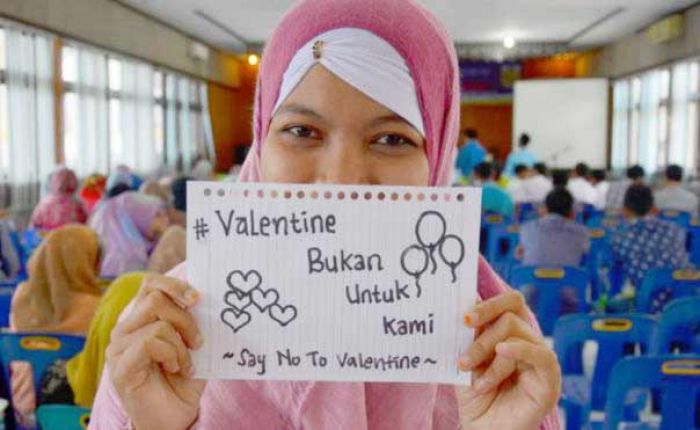 # Valentine
Bukan
Untuk
Kami
~ Say No To Valentine ~